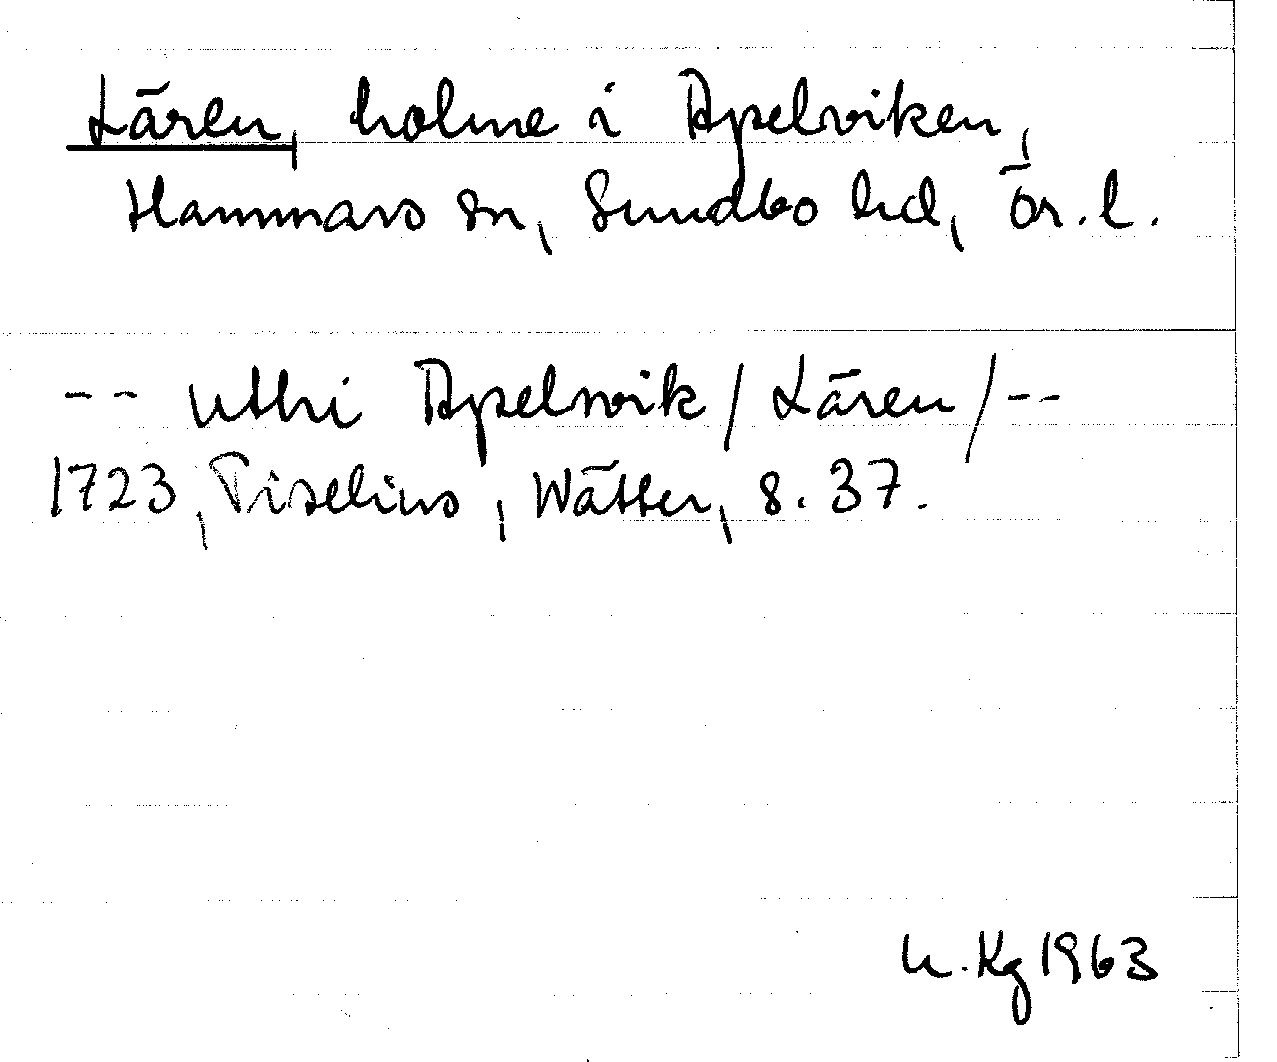 Lären, holme i Apelviken,
Hammars sn, Sundbo hd, Ör.l.
-- uthi Apelwik / Lären / --
1723, Tiselius, Wätter, s. 37.
U.Kg 1963